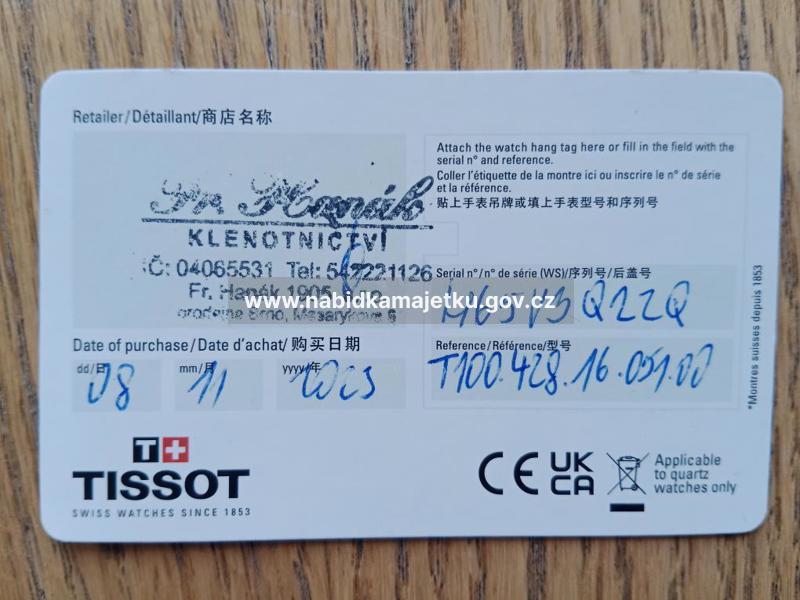 Retailer/Détaillant/商店名称
Fr. Hanák
KLENOTNICTVÍ
IČ: 04065531 Tel: 542221126
Fr. Hanák 1905
prodejna Brno, Masarykova 6
Date of purchase/Date d'achat/购买日期
dd/日 mm/月 yyyy/年
08 11 2023
Attach the watch hang tag here or fill in the field with the
serial n° and reference.
Coller l'étiquette de la montre ici ou inscrire le n° de série
et la référence.
贴上手表吊牌或填上手表型号和序列号
Serial n°/n° de série (WS)/序列号/后盖号
Q22Q
Reference/Référence/型号
T100.428.16.051.00
www.nabidkamajetku.gov.cz
*Montres suisses depuis 1853
T+
TISSOT
SWISS WATCHES SINCE 1853
CE UK
CA
Applicable
to quartz
watches only